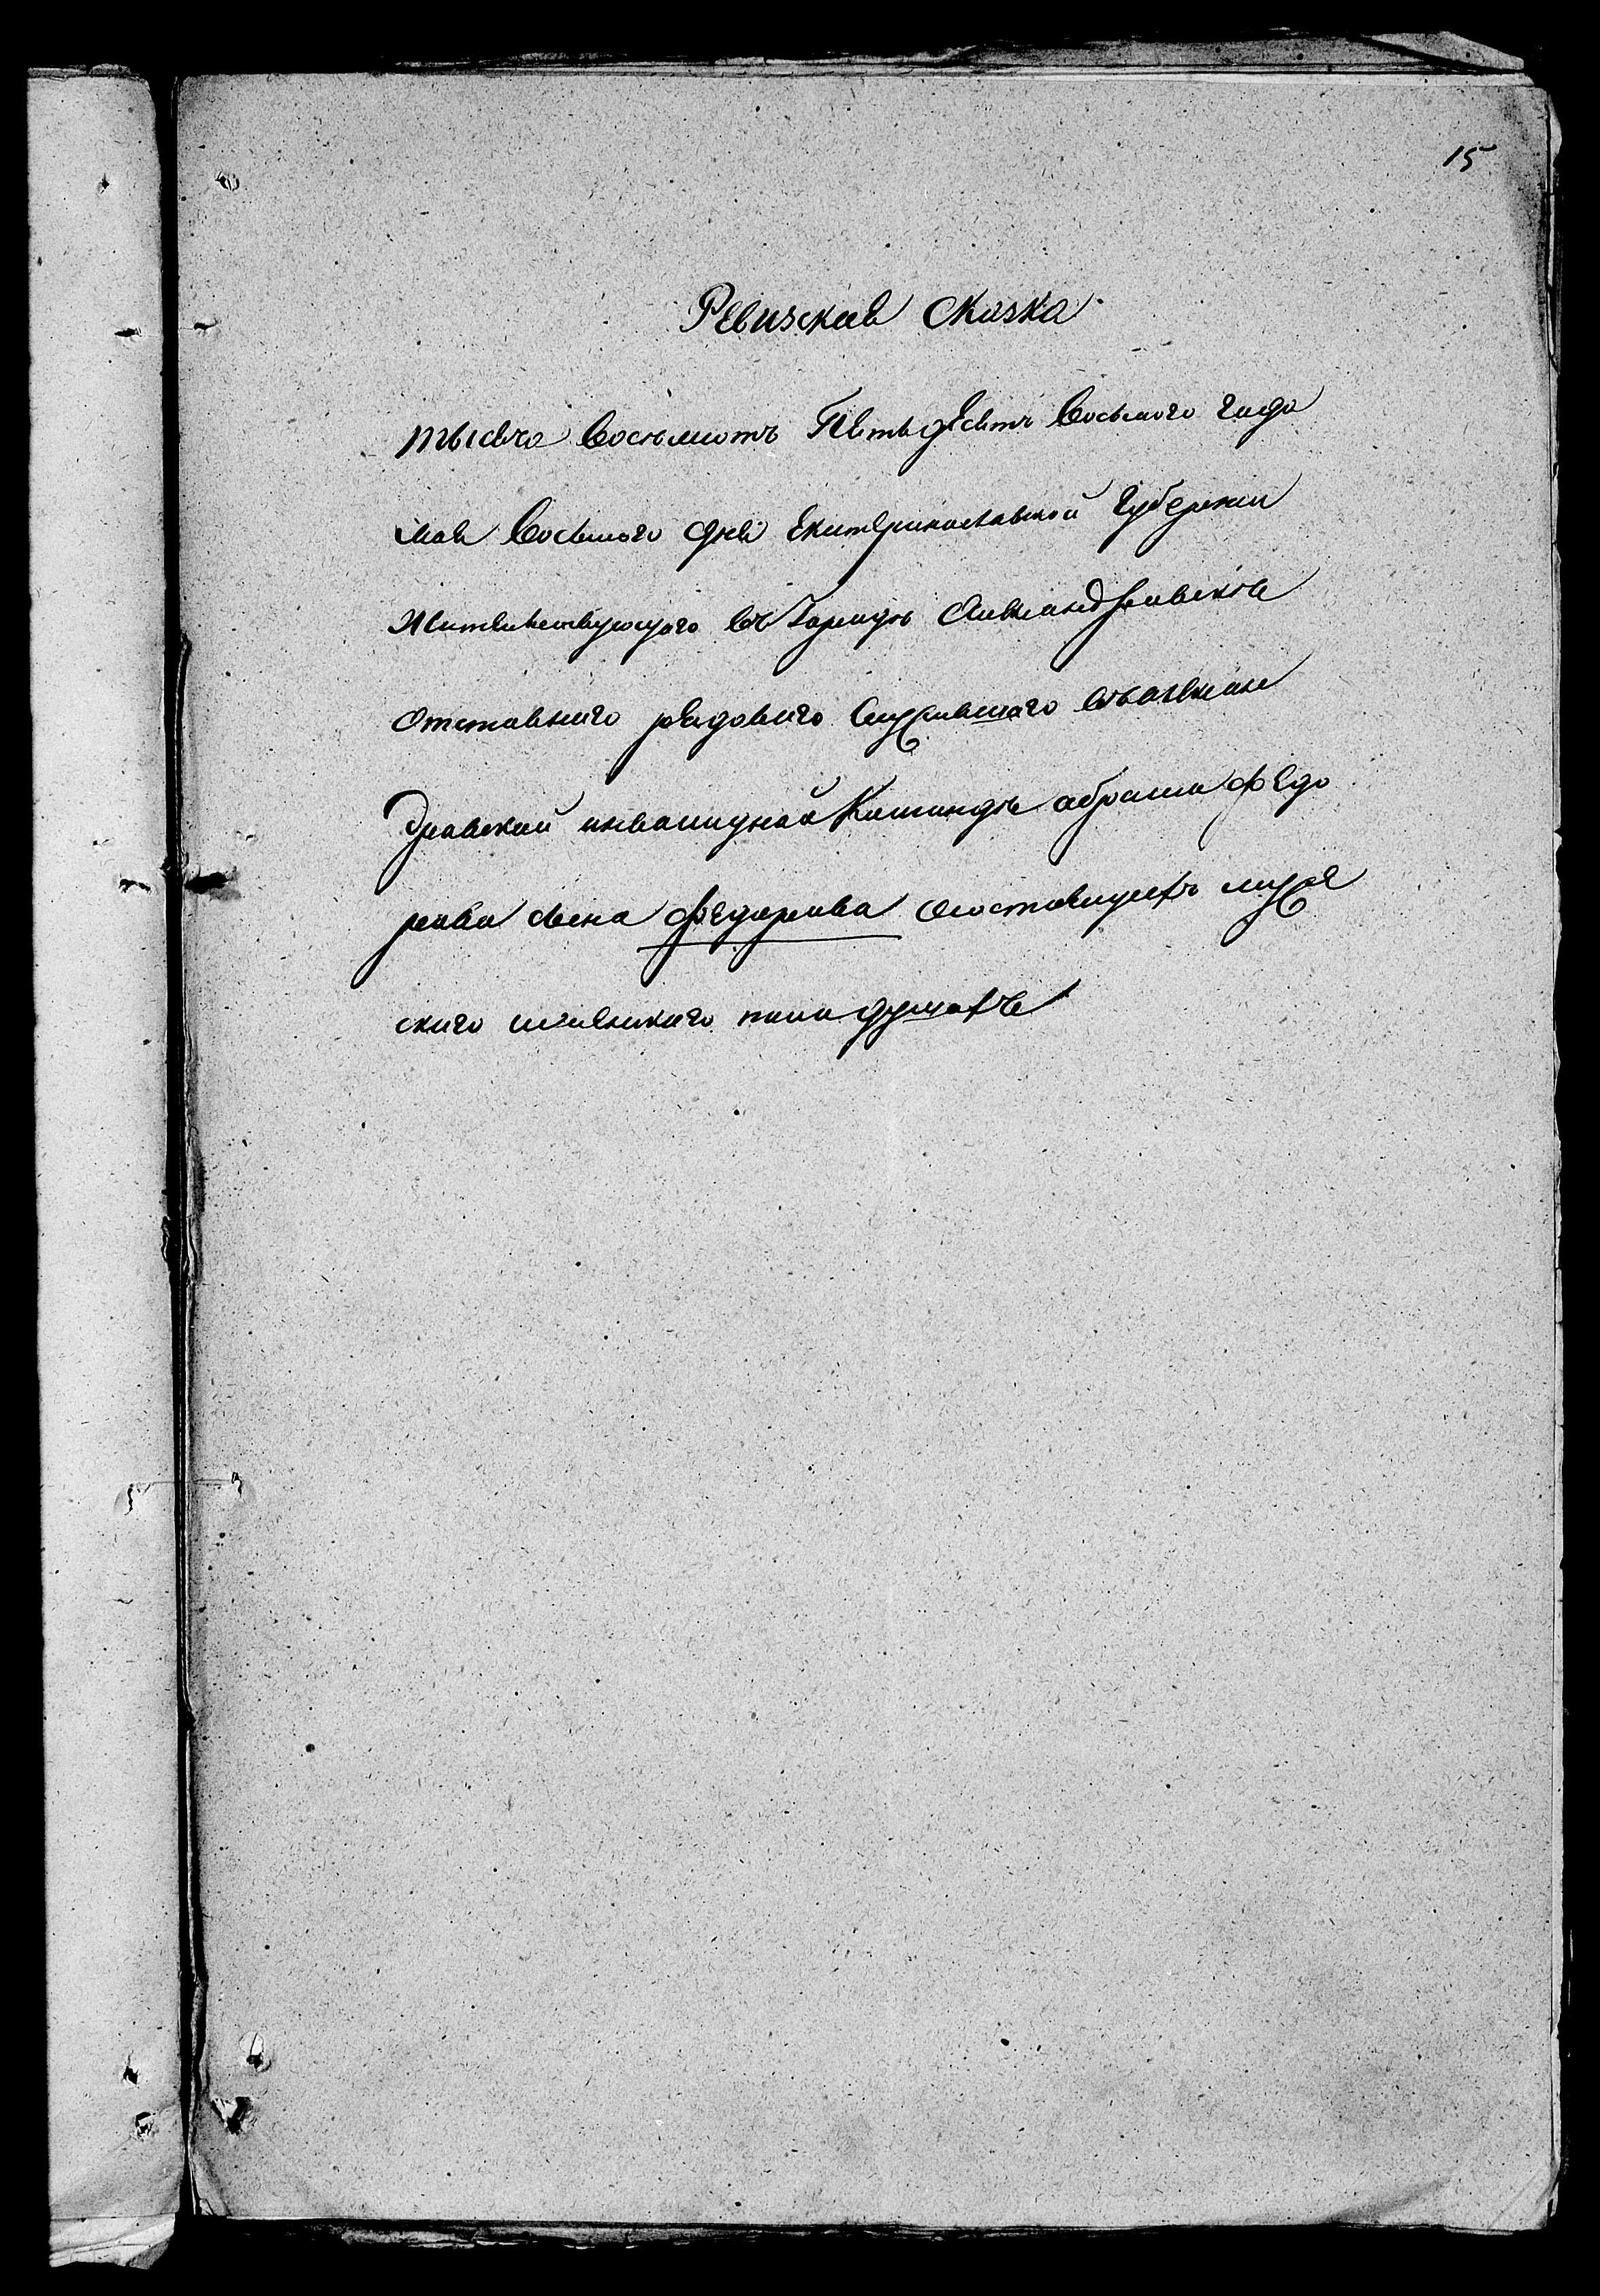 15
Ревизская Сказка
тысяча восемьсотъ Пятьдесятъ Восьмого года
мая Восьмого дня Екатеринославской Губернии
Жительствующаго въ Городѣ Александровскѣ
Отставнаго рядоваго Служившаго въ алексан
дровской инвалидной Командѣ абрама федо
рова сына федорова О состоящихъ муже
скаго и женскаго пола душахъ